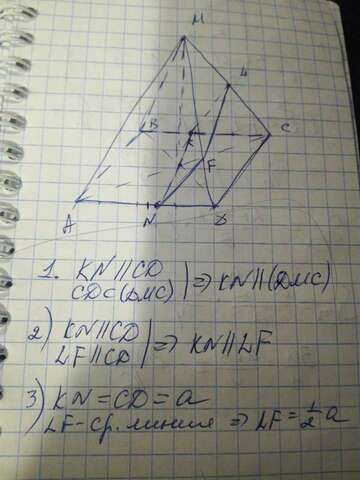 M
L
B
K
C
F
A
N
D
1. KN||CD
CD⊂(DMC) | ⇒ KN||(DMC)
2) KN||CD
LF||CD | ⇒ KN||LF
3) KN = CD = a
LF-ср. линия ⇒ LF = 1/2 a